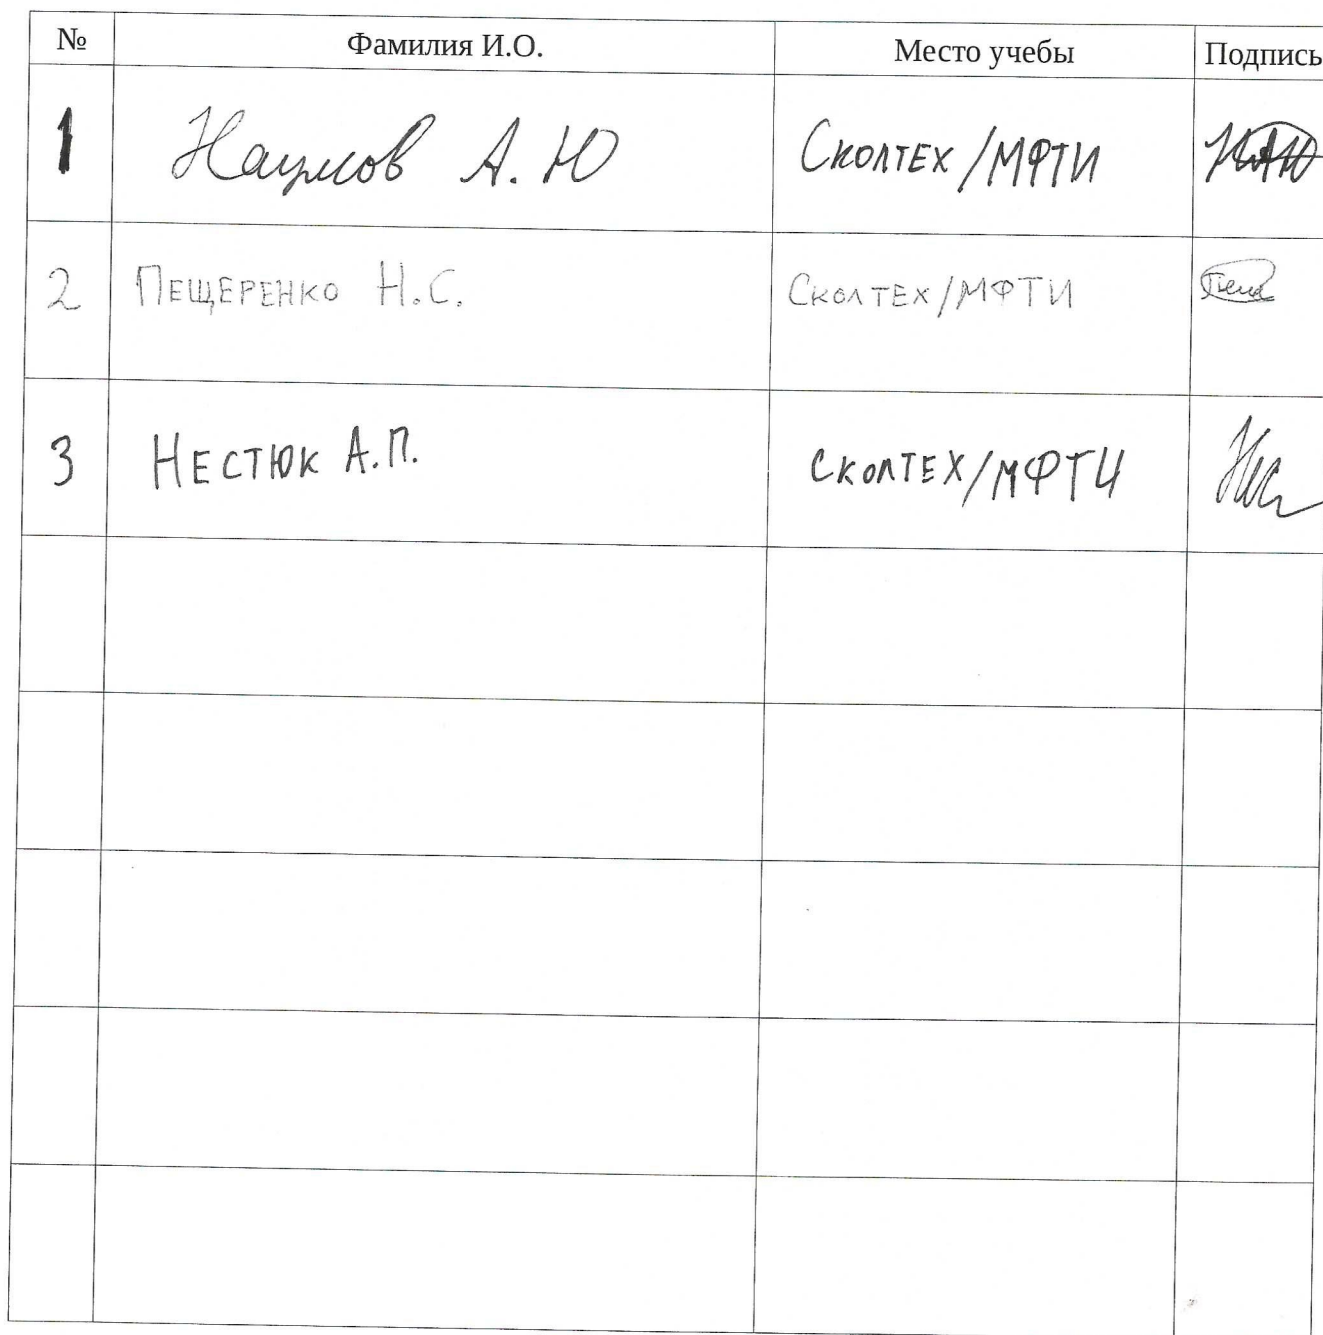 № Фамилия И.О. Место учебы Подпись
1 Наумов А.Ю Сколтех/МФТИ НАЮ
2 Пещеренко Н.С. Сколтех/МФТИ
3 Нестюк А.П. Сколтех/МФТИ